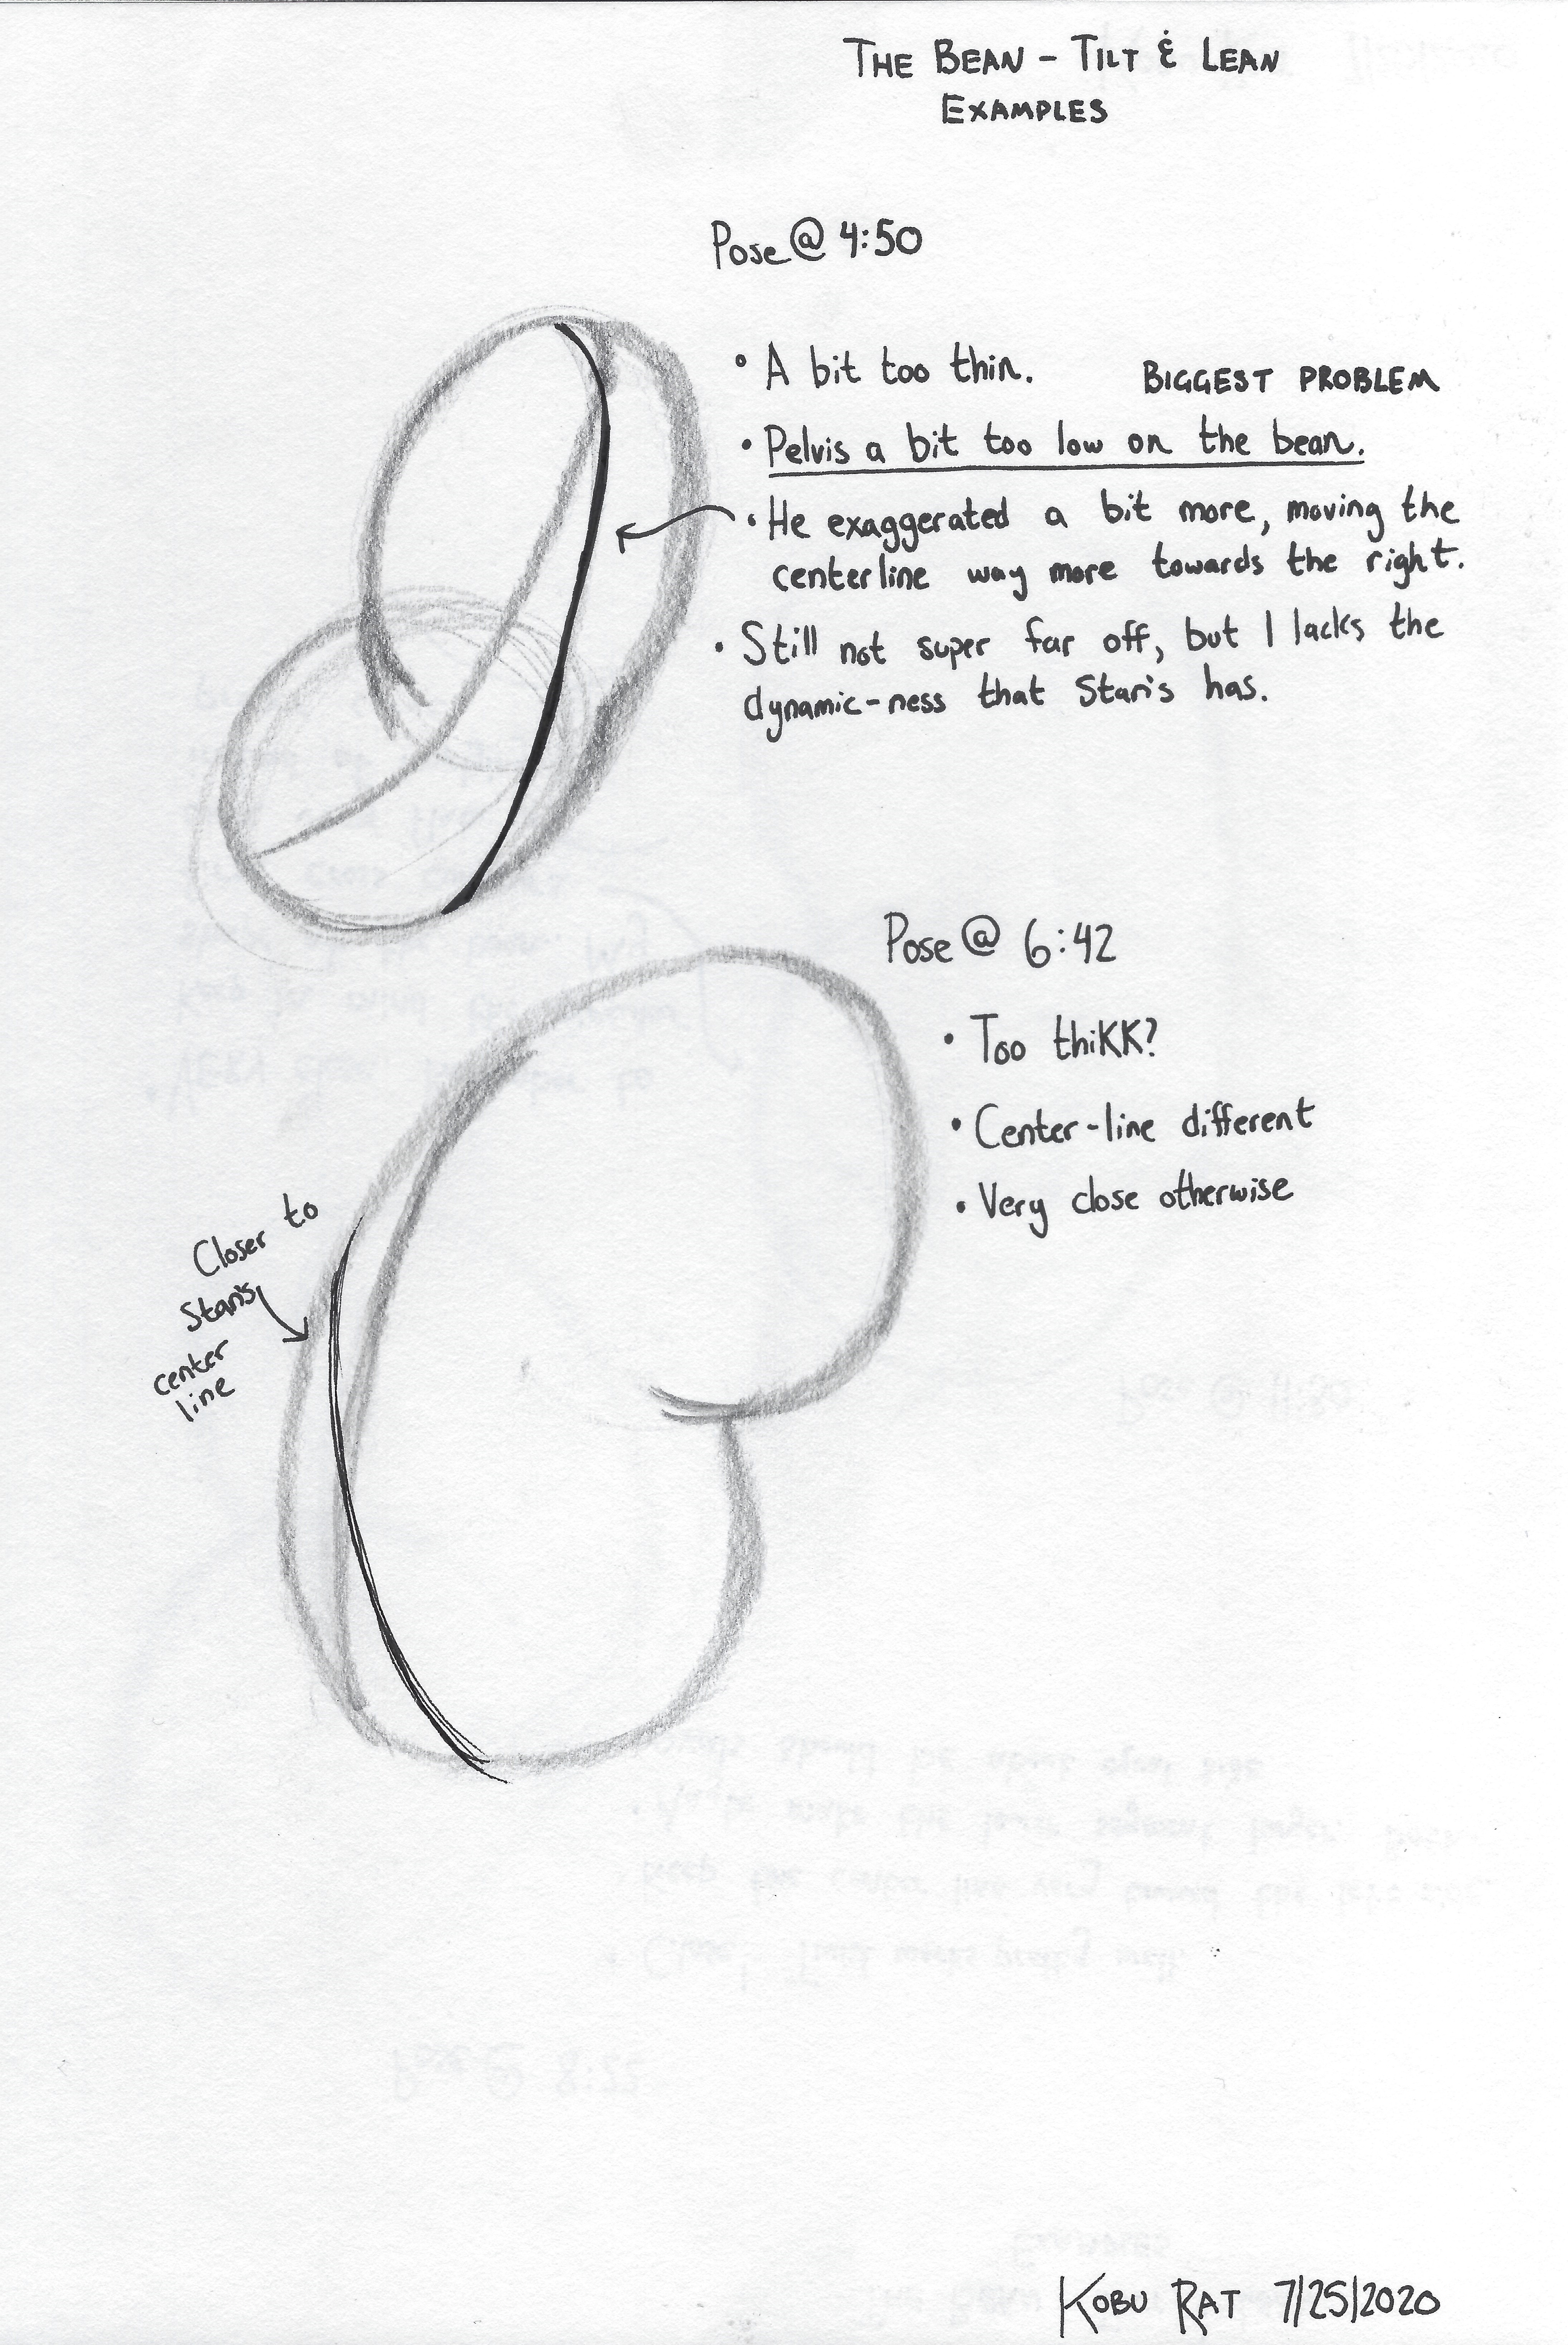 THE BEAN - TILT & LEAN
EXAMPLES
Pose @ 4:50
• A bit too thin.
BIGGEST PROBLEM
• Pelvis a bit too low on the bean.
• He exaggerated a bit more, moving the
centerline way more towards the right.
• Still not super far off, but I lacks the
dynamic-ness that Stan's has.
Pose @ 6:42
• Too thiKK?
• Center-line different
• Very close otherwise
Closer to
Stan's
center
line
KOBU RAT 7/25/2020